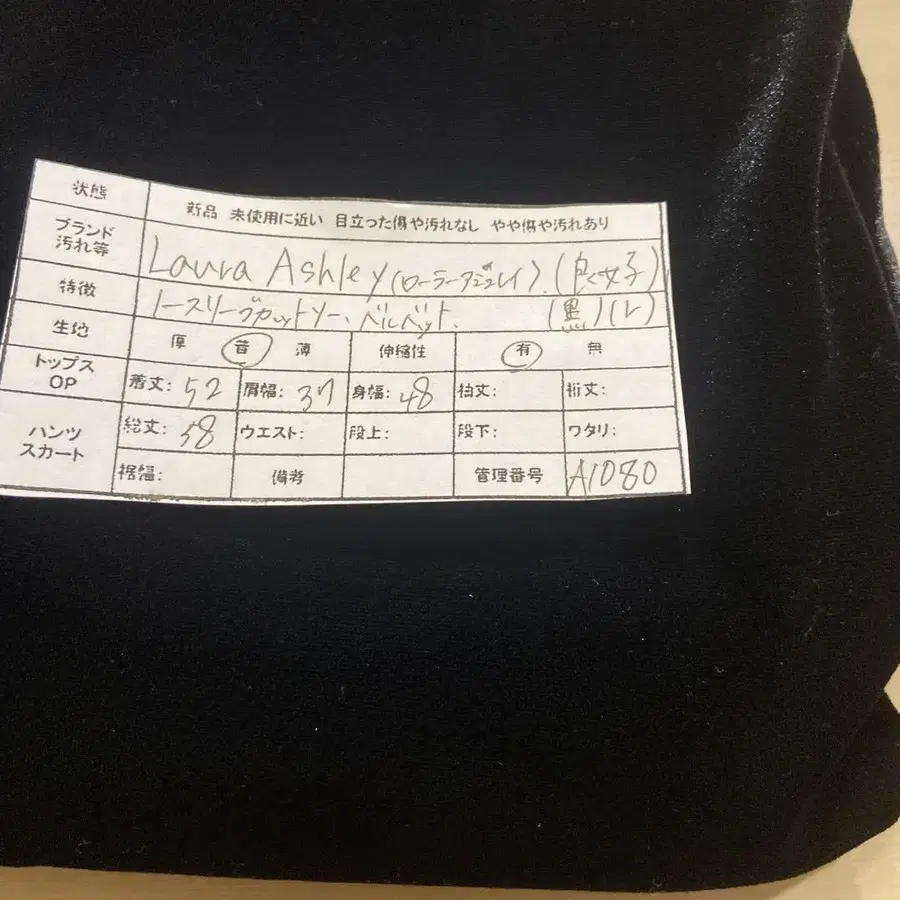 状態 新品 未使用に近い 目立った傷や汚れなし やや傷や汚れあり
ブランド 汚れ等 Laura Ashley (ローラーアシュレイ).
特徴 ノースリーブカットソー、ベルベット. (黒)(L)
生地 厚 普 薄 伸縮性 有 無
トップス OP 着丈: 52 肩幅: 37 身幅: 48 袖丈: 裄丈:
パンツ スカート 総丈: 58 ウエスト: 股上: 股下: ワタリ:
裾幅: 備考 管理番号 A1080